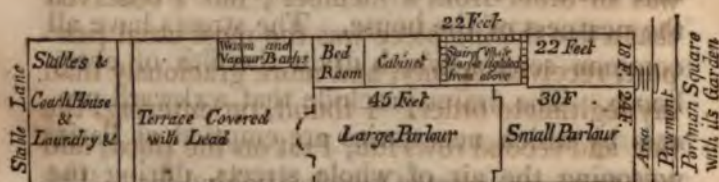 22 Feet
Stable Lane
Stables &
Coach House
&
Laundry &
Terrace Covered
with Lead
Warm and
Vapour Baths
Bed
Room
Cabinet
Stairs
from above
22 Feet
18 F.
45 Feet
Large Parlour
30 F
Small Parlour
24 F
Area
Pavement
Portman Square
with its Garden